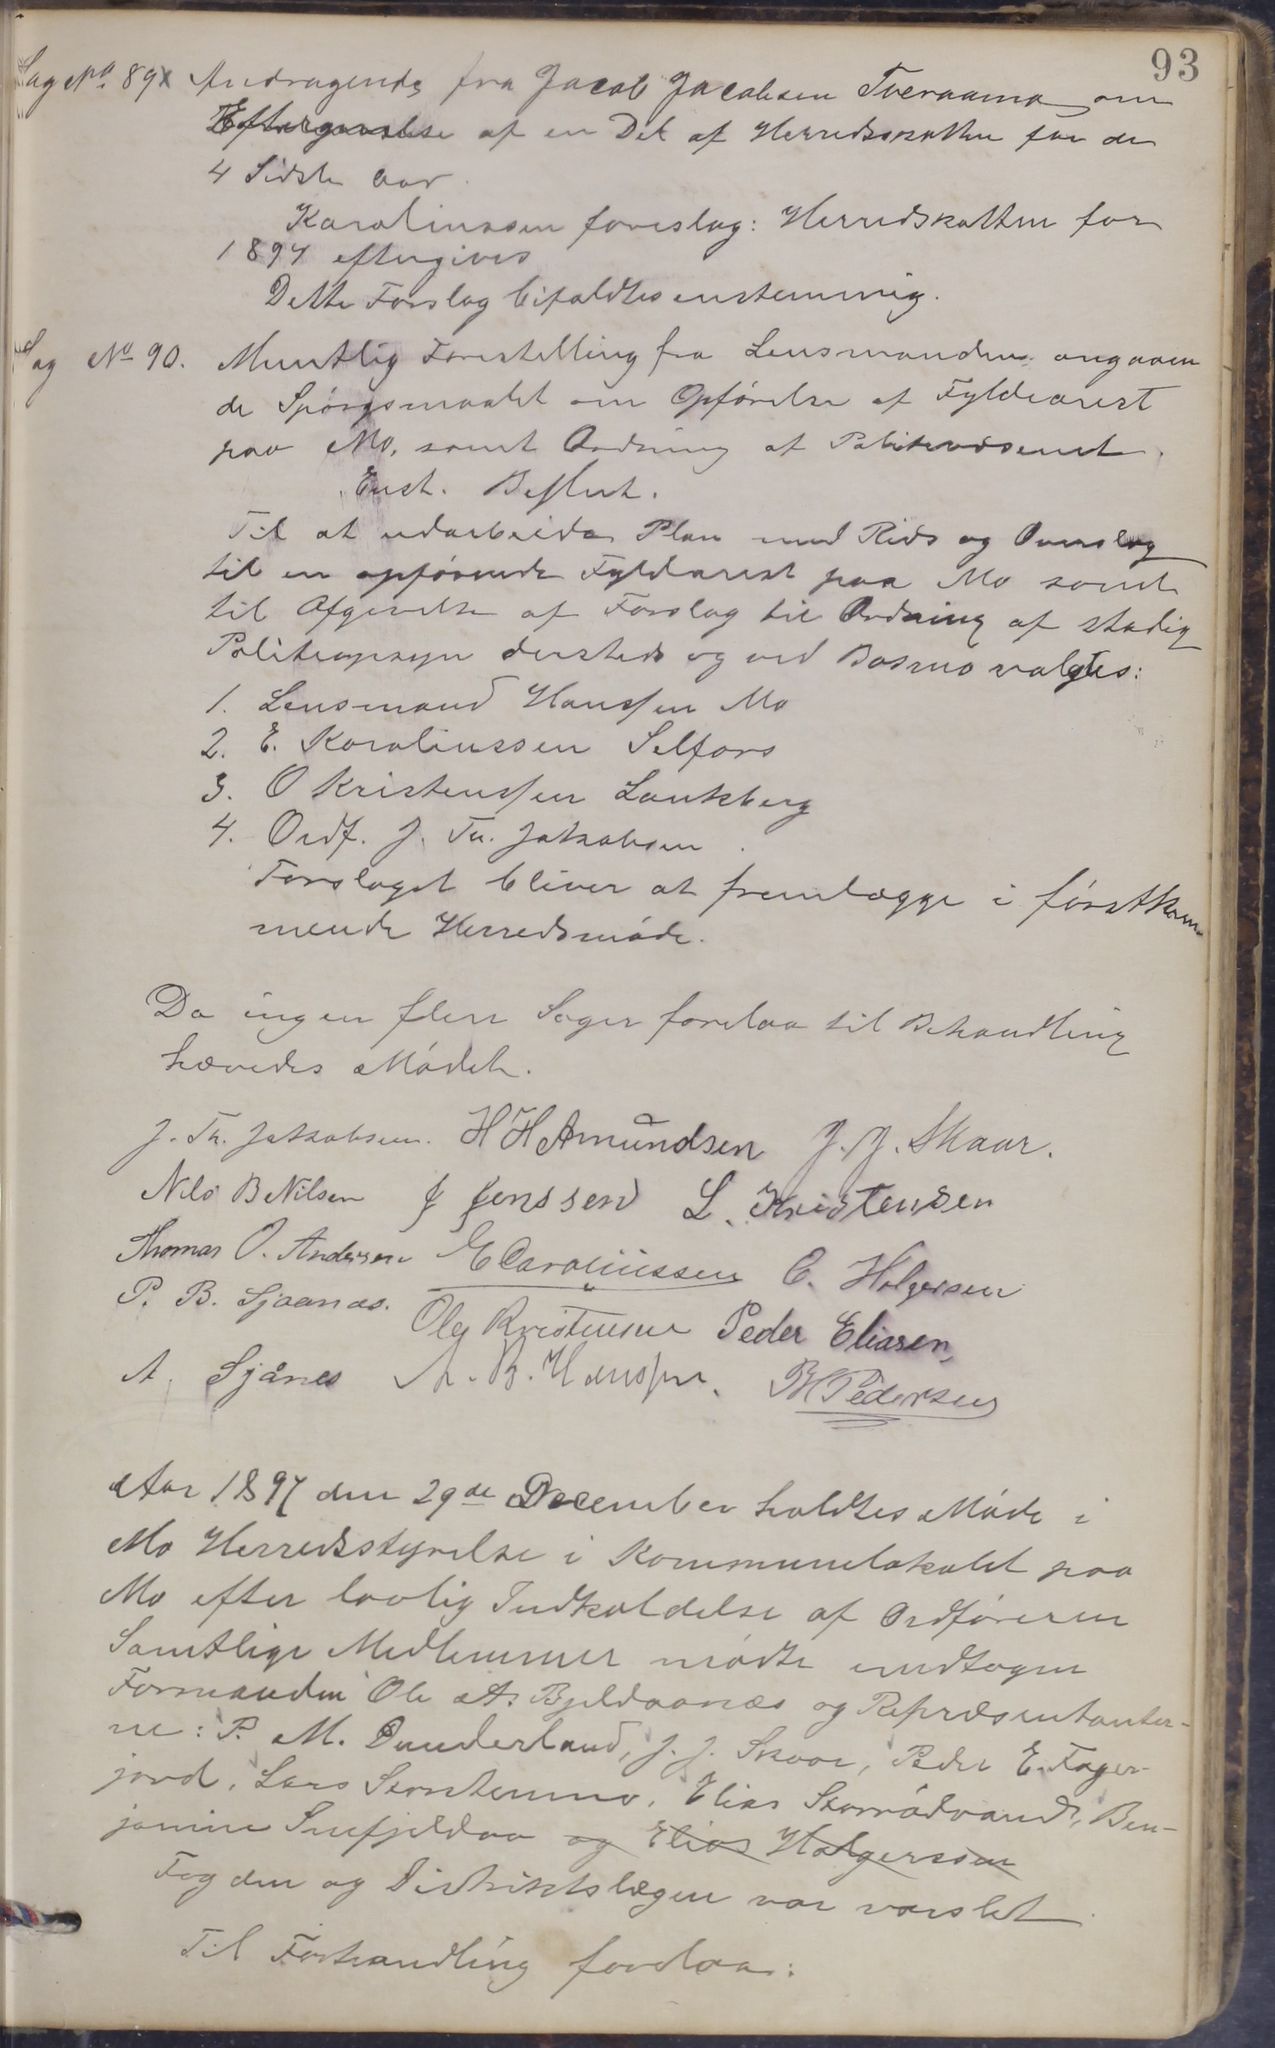 93
Sag No. 89 x Andragende fra Jacob Jacobsen Tveraamo om
Eftergivelse af en Del af Herredsskatten for de
4 Sidste Aar.
Karolinssen foreslog: Herredskatten for
1897 eftergives
Dette Forslag bifaldtes enstemmig.
Sag No 90. Muntlig Forestelling fra Lensmanden angaaen
de Spörgsmaalet om Opförelse af Fyldearest
paa Mo, samt Ordning af Politivæsenet.
Enst. Beslut.
Til at udarbeide Plan med Rids og Overslag
til en opförende Fyldearest paa Mo samt
til Afgivelse af Forslag til Ordning af stadig
Politiopsyn dersteds og ved Bosmo valgtes:
1. Lensmand Hanssen Mo
2. E. Karolinssen Selfors
3. O Kristenssen Lankberg
4. Ordf. J. Th. Jakobsen.
Forslaget bliver at fremlægge i förstkom
mende Herredsmöde.
Da ingen flere Sager forelaa til Behandling
hævedes Mödet.
J. Th. Jakobsen. H H Amundsen J. J. Skaar.
Nils B Nilsen J Jenssen L. Kristensen
Thomas O. Andersen E Carolinssen E. Holgersen
P. B. Sjaanæs. Ole Kristensen Peder Eliasen,
A. Sjånes A. B. Hanssen. PH Pedersen
Aar 1897 den 29de December holdtes Möde i
Mo Herredsstyrelse i Kommunelokalet paa
Mo efter lovlig Indkaldelse af Ordföreren
Samtlige Medlemmer mödte undtagen
Formanden Ole A. Bjeldaanæs og Repræsentanter-
ne: P. M. Dunderland, J. J. Skaar, Peder E. Fager-
jord, Lars Storstenmo, Elias Storrödvand, Ben-
jamin Snefjeldaa og Elias Holgerssen
Fogden og Distriktslægen var varslet.
Til Forhandling forelaa: